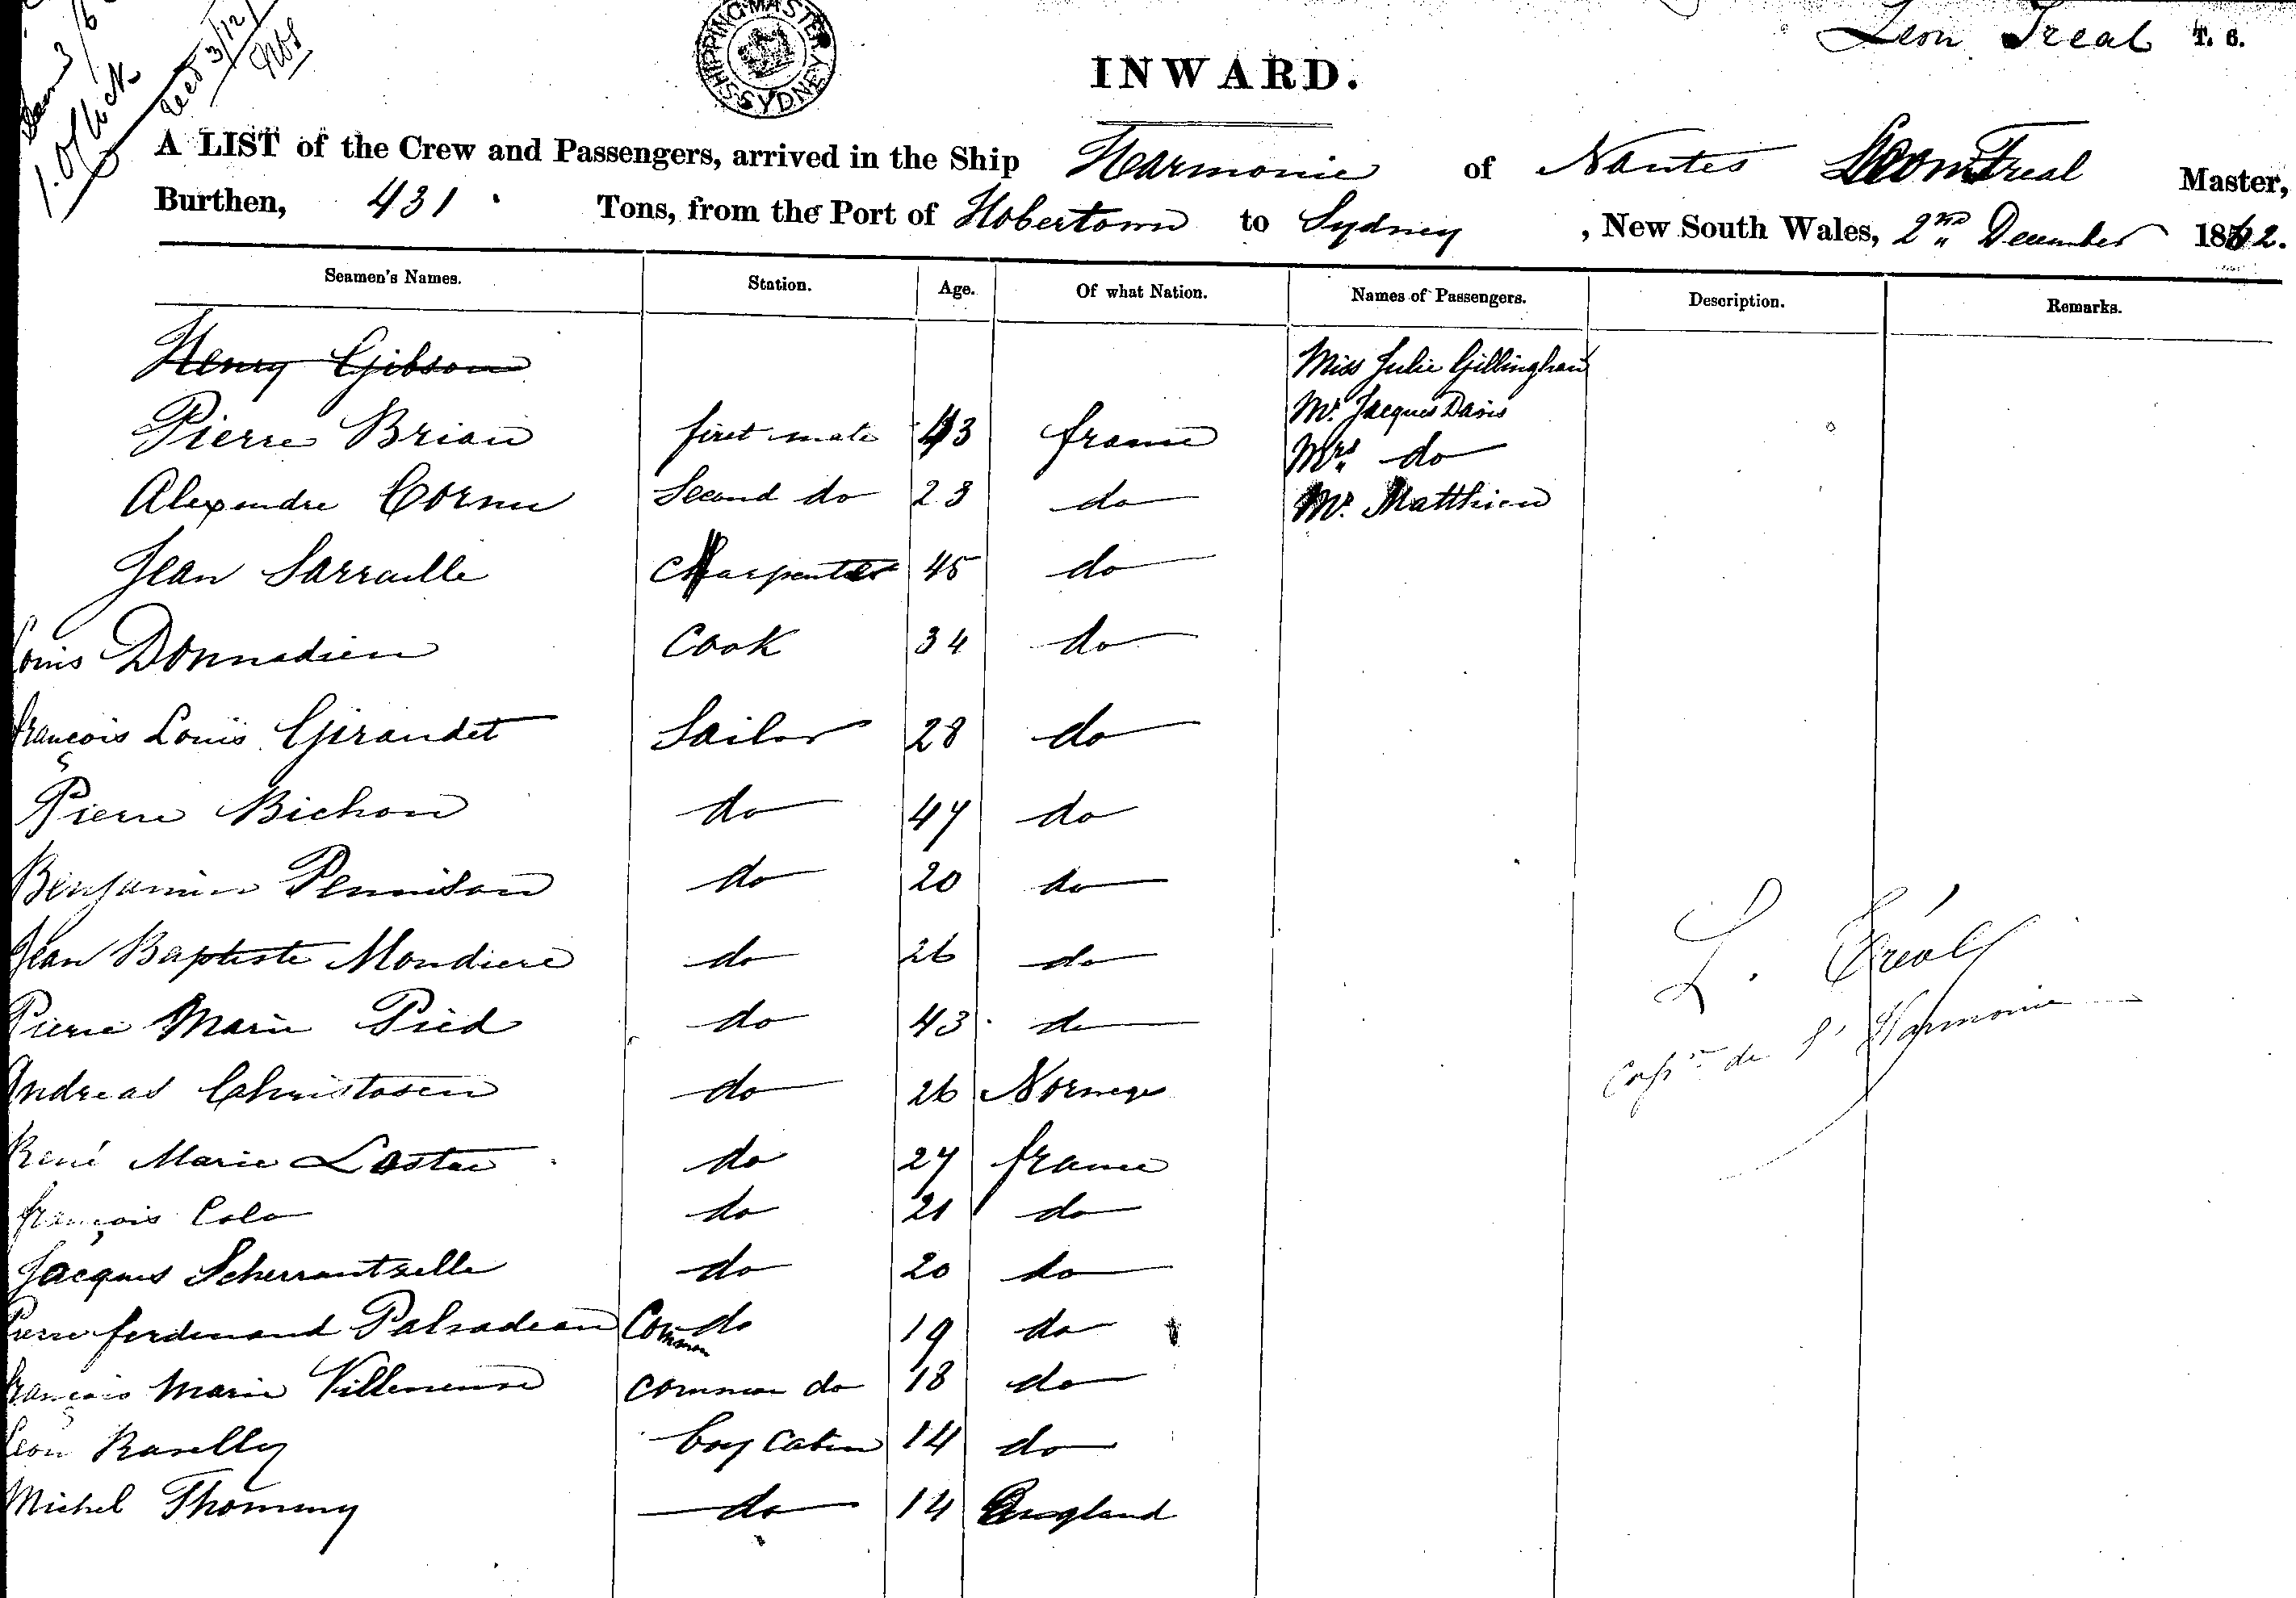 Leon Treal T. 6.
SHIPPING MASTER SYDNEY
INWARD.
A LIST of the Crew and Passengers, arrived in the Ship Harmonie of Nantes Leon Treal Master,
Burthen, 431 Tons, from the Port of Hobertown to Sydney, New South Wales, 2nd December 1862.
Seamen's Names. Station. Age. Of what Nation. Names of Passengers. Description. Remarks.
Henry Gibson Miss Julie Gillingham
Pierre Brian first mate 43 france Mr. Jacques Davis
Mrs do
Alexandre Cornu Second do 23 do Mr. Matthieu
Jean Sarraille Charpenter 45 do
Louis Donnadieu Cook 34 do
françois Louis Giraudet Sailor 28 do
Pierre Bichon do 47 do
Benjamin Pennison do 20 do
Jean Baptiste Mondiere do 26 do
Pierre Marie Pied do 43 do
L. Tréal
Andreas Christosen do 26 Norwege
Capne de l'Harmonie
René Marie Lostee do 27 france
françois Colo do 21 do
Jacques Scherrantzelle do 20 do
Pierre ferdinand Palvadeau Common do 19 do
françois Marie Villeneuve common do 18 do
Leon Raselly boy Cabin 14 do
Michel Thommy do 14 England